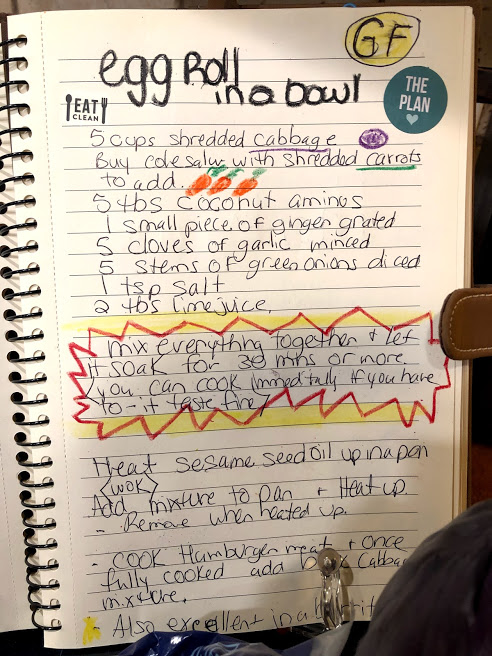 GF
egg Roll
in a bowl
EAT
CLEAN
THE
PLAN
5 cups shredded cabbage
Buy coleslaw with shredded carrots
to add.
5 tbs coconut aminos
1 small piece of ginger grated
5 cloves of garlic minced
5 stems of green onions diced
1 tsp salt
2 tbs limejuice.
mix everything together + let
it soak for 30 mns or more
you can cook immeditully if you have
to - it taste fine
Heat sesame seed oil up in a pan
(WOK)
Add mixture to pan + Heat up.
- Remove when heated up.
- COOK Hamburger meat + once
fully cooked add Cabba
mixture.
- Also excellent in a